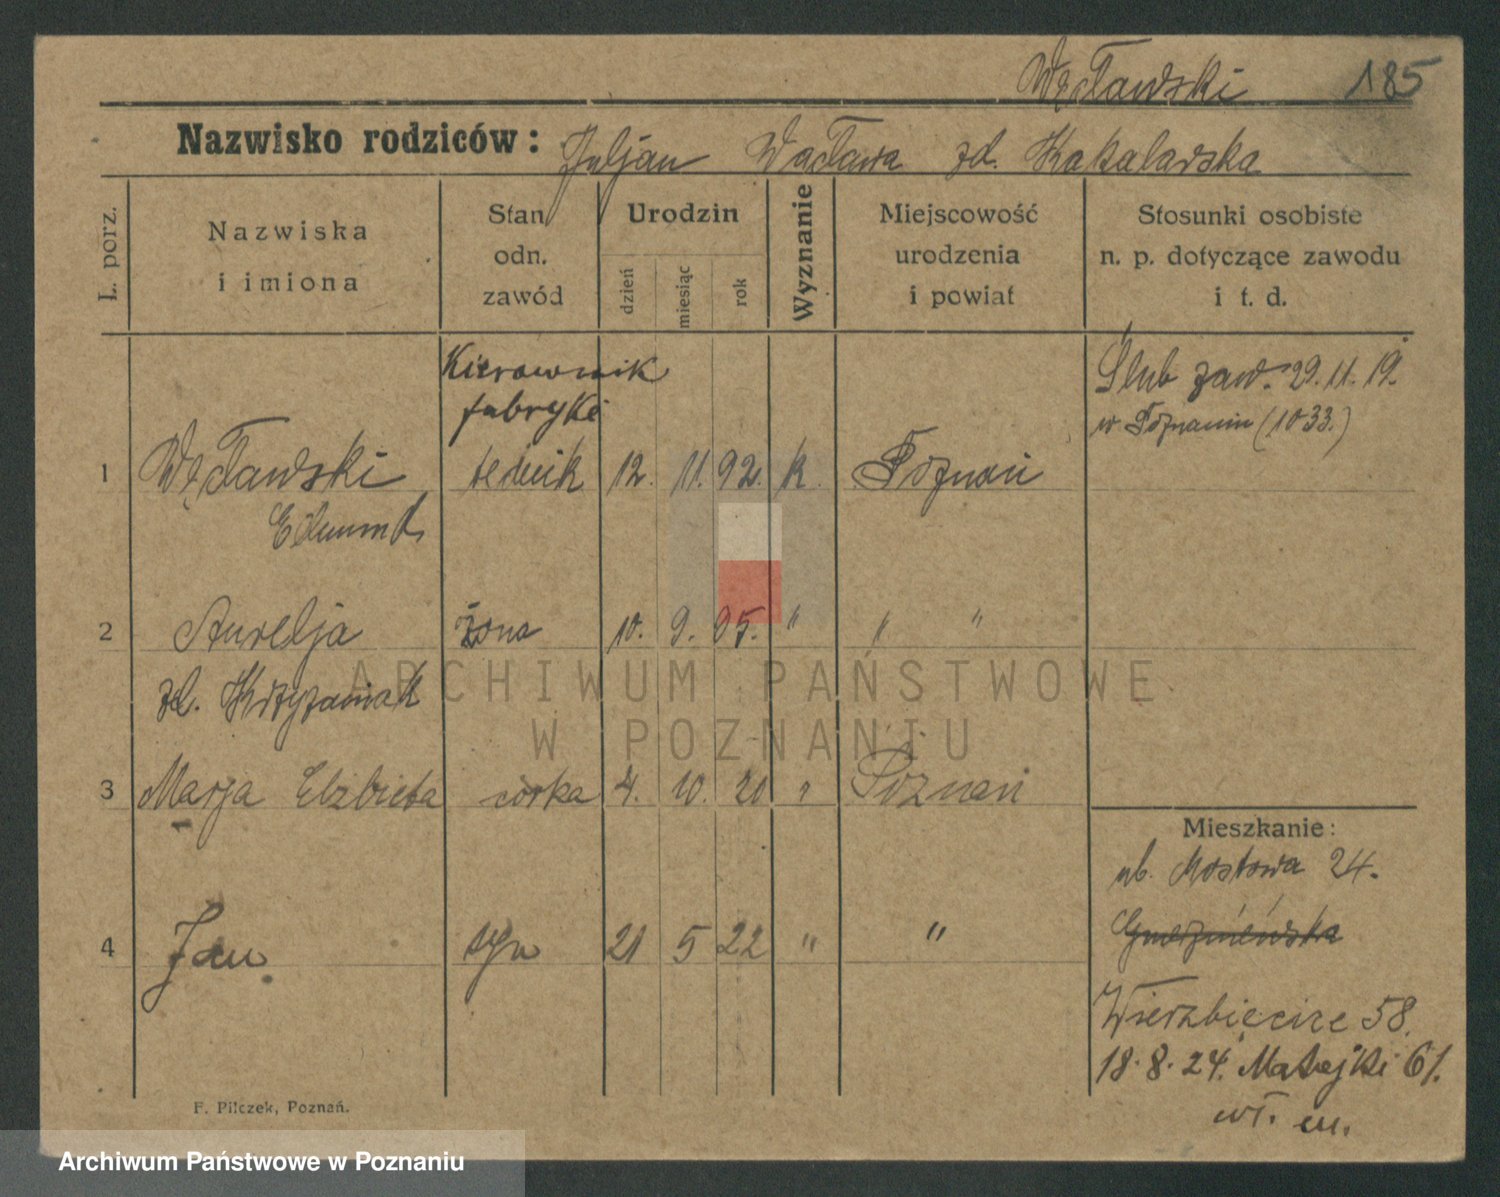 Węcławski 185
Nazwisko rodziców: Juljan Wacława zd. Kakalarska
L. porz.
Nazwiska
i imiona
Stan
odn.
zawód
Urodzin
dzień
miesiąc
rok
Wyznanie
Miejscowość
urodzenia
i powiat
Stosunki osobiste
n. p. dotyczące zawodu
i t. d.
Kierownik
fabryki
Ślub zaw. 29.11.19.
w Poznaniu (1033.)
1 Węcławski technik 12. 11. 92. k. Poznań
Edmund
2 Aurelja żona 10. 9. 95. " " "
zd. Krzyżaniak
3 Marja Elżbieta córka 4. 10. 20 " Poznań
Mieszkanie:
ub. Mostowa 24.
4 Jan syn 21 5 22 " "
Gnieźnieńska
Wierzbięcice 58.
18.8.24. Matejki 61.
wł. m.
F. Pilczek, Poznań.
ARCHIWUM PAŃSTWOWE
W POZNANIU
Archiwum Państwowe w Poznaniu